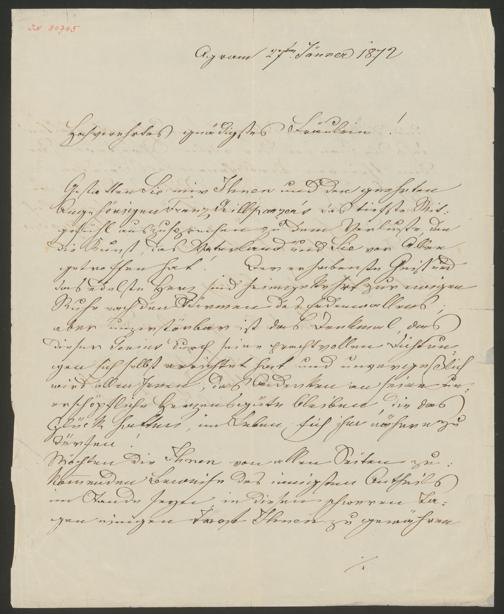 IN 80705
Agram 27ten Jänner 1872
Hochverehrtes gnädigstes Fräulein!
Gestatten Sie mir Ihnen und den geehrten
Angehörigen Franz Grillparzer's das tiefste Mit-
gefühl auszusprechen zu dem Verluste, der
die Kunst, das Vaterland und Sie vor Allen
getroffen hat! Der erhabenste Geist und
das edelste Herz sind heimgekehrt zur ewigen
Ruhe nach den Stürmen des Erdenwallens,
aber unzerstörbar ist das Denkmal, das
dieser Genius durch seine prachtvollen Dichtun-
gen sich selbst errichtet hat und unvergeßlich
wird allen Jenen, das Andenken an seine un-
erschöpfliche Herzensgüte bleiben, die das
Glück hatten, im Leben sich ihm nähern zu
dürfen!
Möchten die Ihnen von allen Seiten zu-
kommenden Beweise des innigsten Antheils
im Stande seyn in diesen schweren Ta-
gen einigen Trost Ihnen zu gewähren
./.